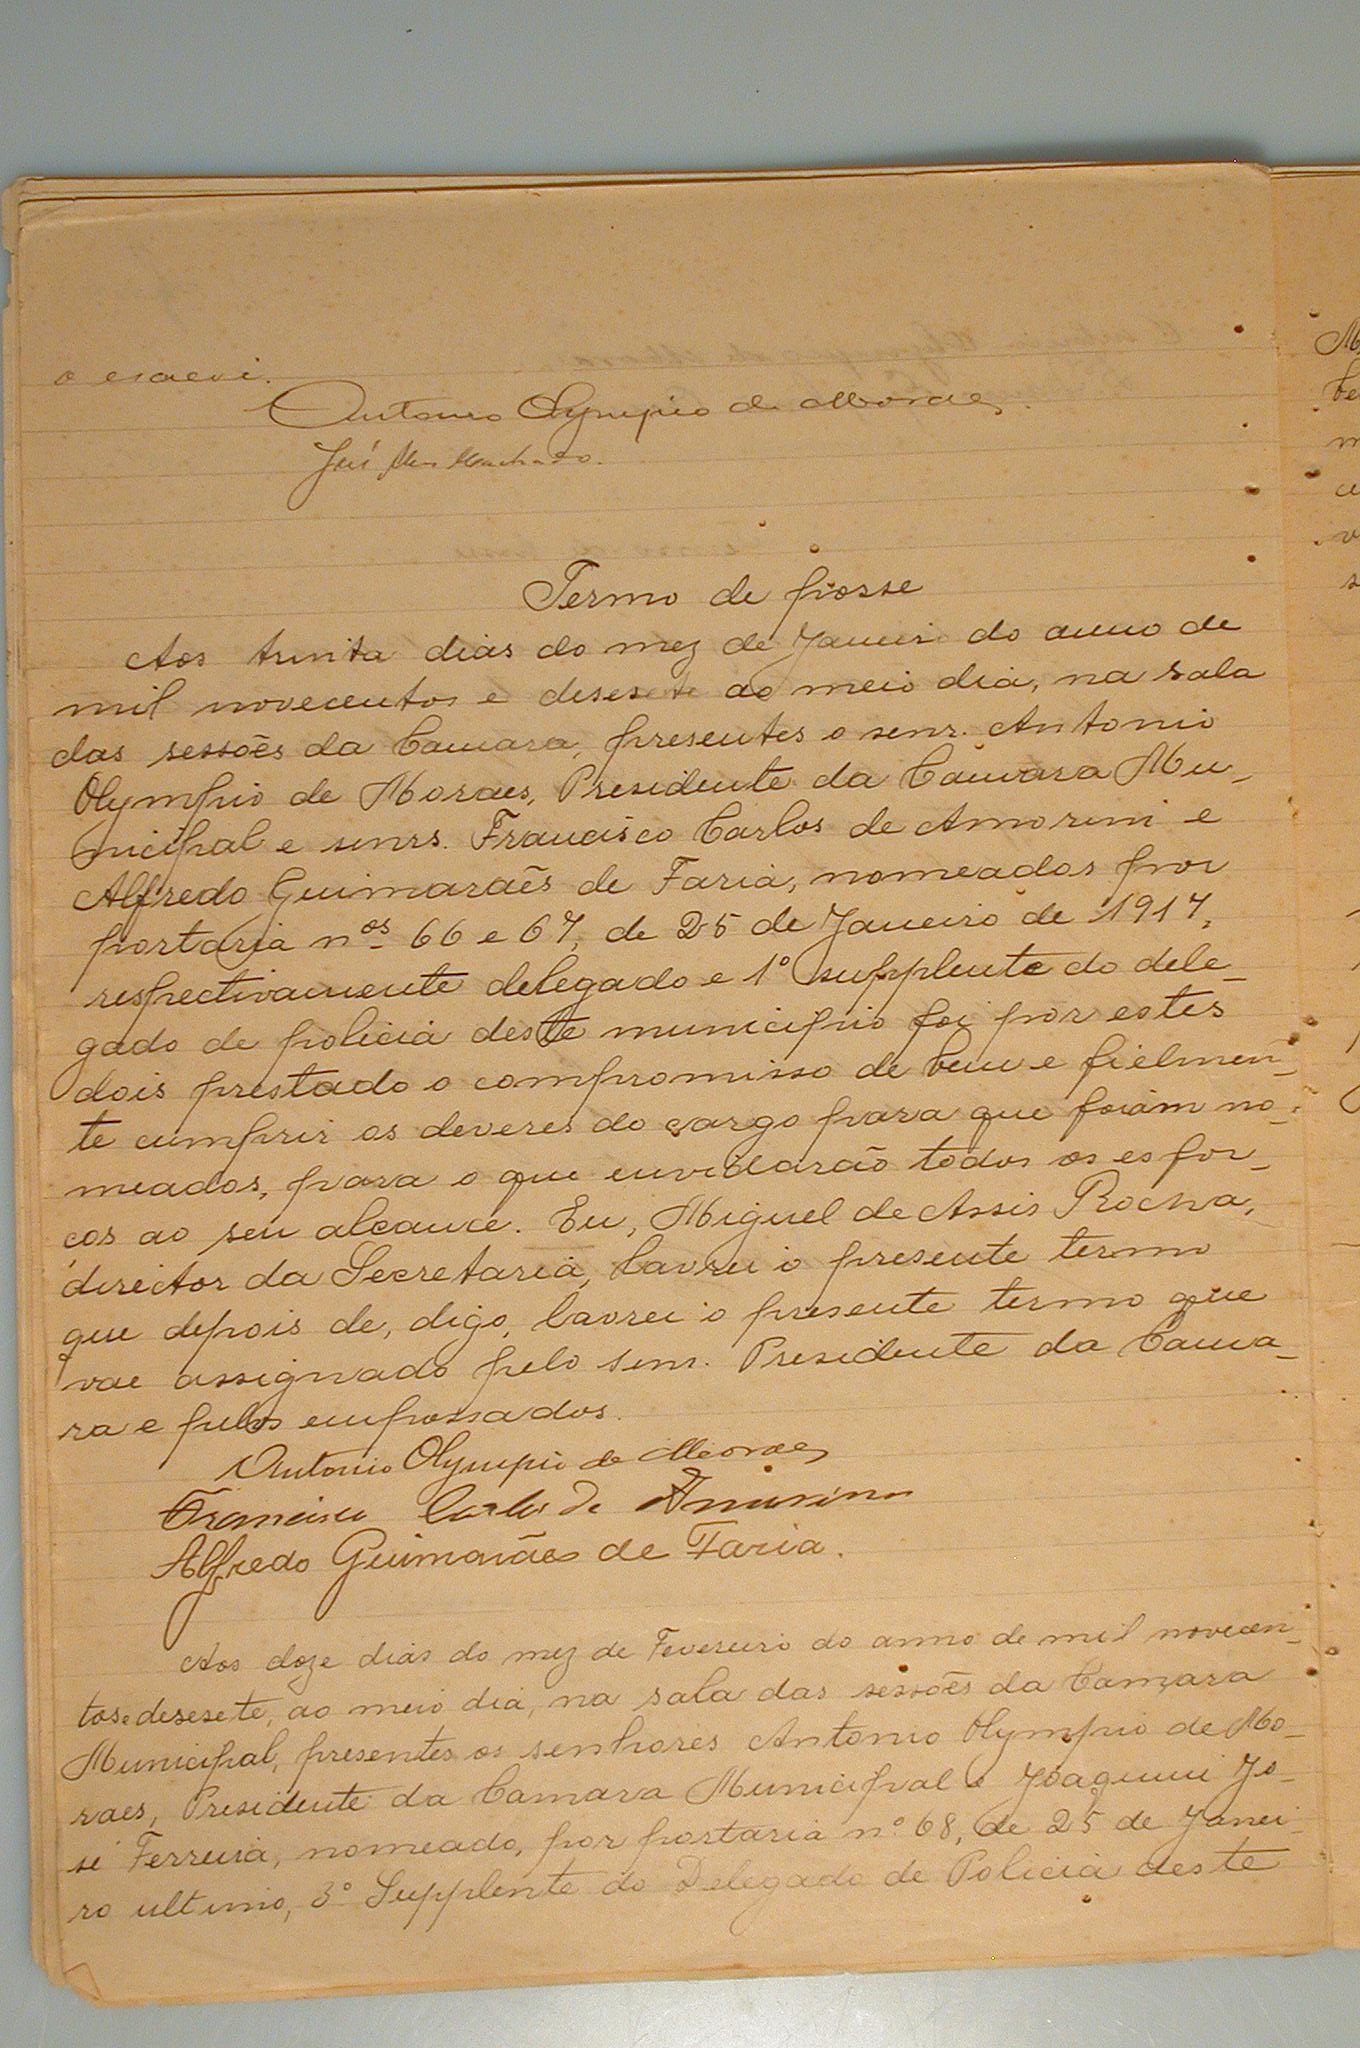 o escrevi.
Antonio Olympio de Moraes.
José Machado.
Termo de posse
Aos trinta dias do mez de Janeiro do anno de
mil novecentos e desesete ao meio dia, na sala
das sessões da Camara, presentes o senr. Antonio
Olympio de Moraes, Presidente da Camara Mu-
nicipal e senrs. Francisco Carlos de Amorim e
Alfredo Guimarães de Faria, nomeados por
portaria nos. 66 e 67, de 25 de Janeiro de 1917,
respectivamente delegado e 1º supplente do dele-
gado de policia deste municipio foi por estes
dois prestado o compromisso de bem e fielmen-
te cumprir os deveres do cargo para que foram no-
meados, para o que envidarão todos os esfor-
ços ao seu alcance. Eu, Miguel de Assis Rocha,
director da Secretaria, lavrei o presente termo
que depois de, digo, lavrei o presente termo que
vae assignado pelo senr. Presidente da Cama-
ra e pelos empossados.
Antonio Olympio de Moraes
Francisco Carlos de Amorim
Alfredo Guimarães de Faria.
Aos doze dias do mez de Fevereiro do anno de mil novecen-
tos e desesete, ao meio dia, na sala das sessões da Camara
Municipal, presentes os senhores Antonio Olympio de Mo-
raes, Presidente da Camara Municipal e Joaquim Jo-
sé Ferreira, nomeado, por portaria nº 68, de 25 de Janei-
ro ultimo, 3º Supplente do Delegado de Policia deste